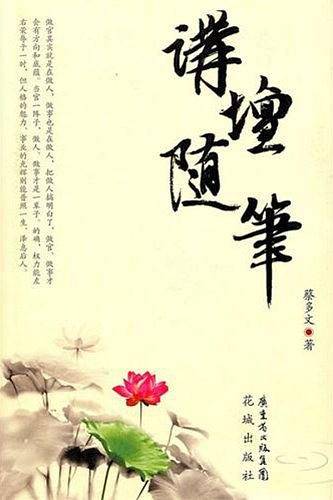 講壇随筆
蔡多文 著
广东省出版集团
花城出版社
做官其实就是在做人，做事也是在做人，把做人搞明白了，做官、做事才
会有方向和底蕴。当官一阵子，做人、做事才是一辈子。的确，权力能左
右荣辱于一时，但人格的魅力、事业的光辉则能普照一生，泽惠后人。